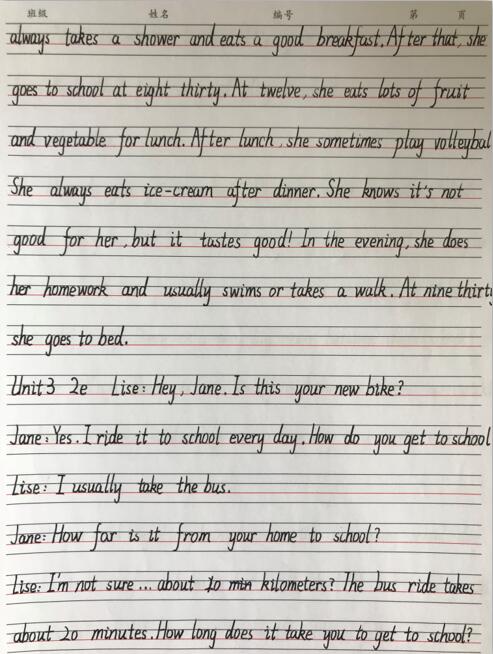 班级 姓名 编号 第 页
always takes a shower and eats a good breakfast. After that, she
goes to school at eight thirty. At twelve, she eats lots of fruit
and vegetable for lunch. After lunch, she sometimes play volleybal
She always eats ice-cream after dinner. She knows it's not
good for her, but it tastes good! In the evening, she does
her homework and usually swims or takes a walk. At nine thirty
she goes to bed.
Unit 3 2e Lise: Hey, Jane. Is this your new bike?
Jane: Yes. I ride it to school every day. How do you get to school
Lise: I usually take the bus.
Jane: How far is it from your home to school?
Lise: I'm not sure... about 10 min kilometers? The bus ride takes
about 20 minutes. How long does it take you to get to school?